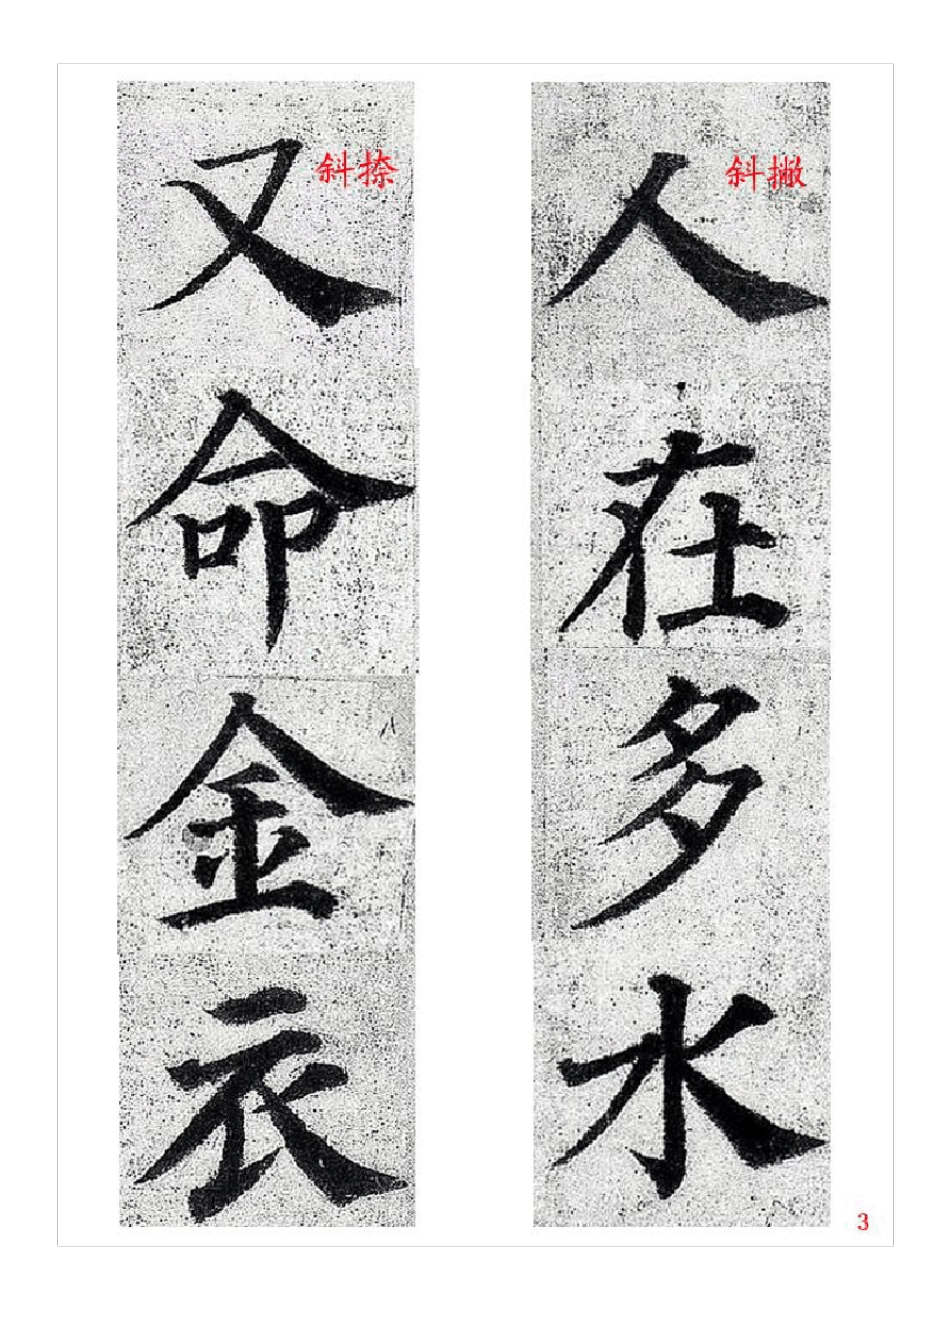 斜撇
人在多水
斜捺
又命金衣
3